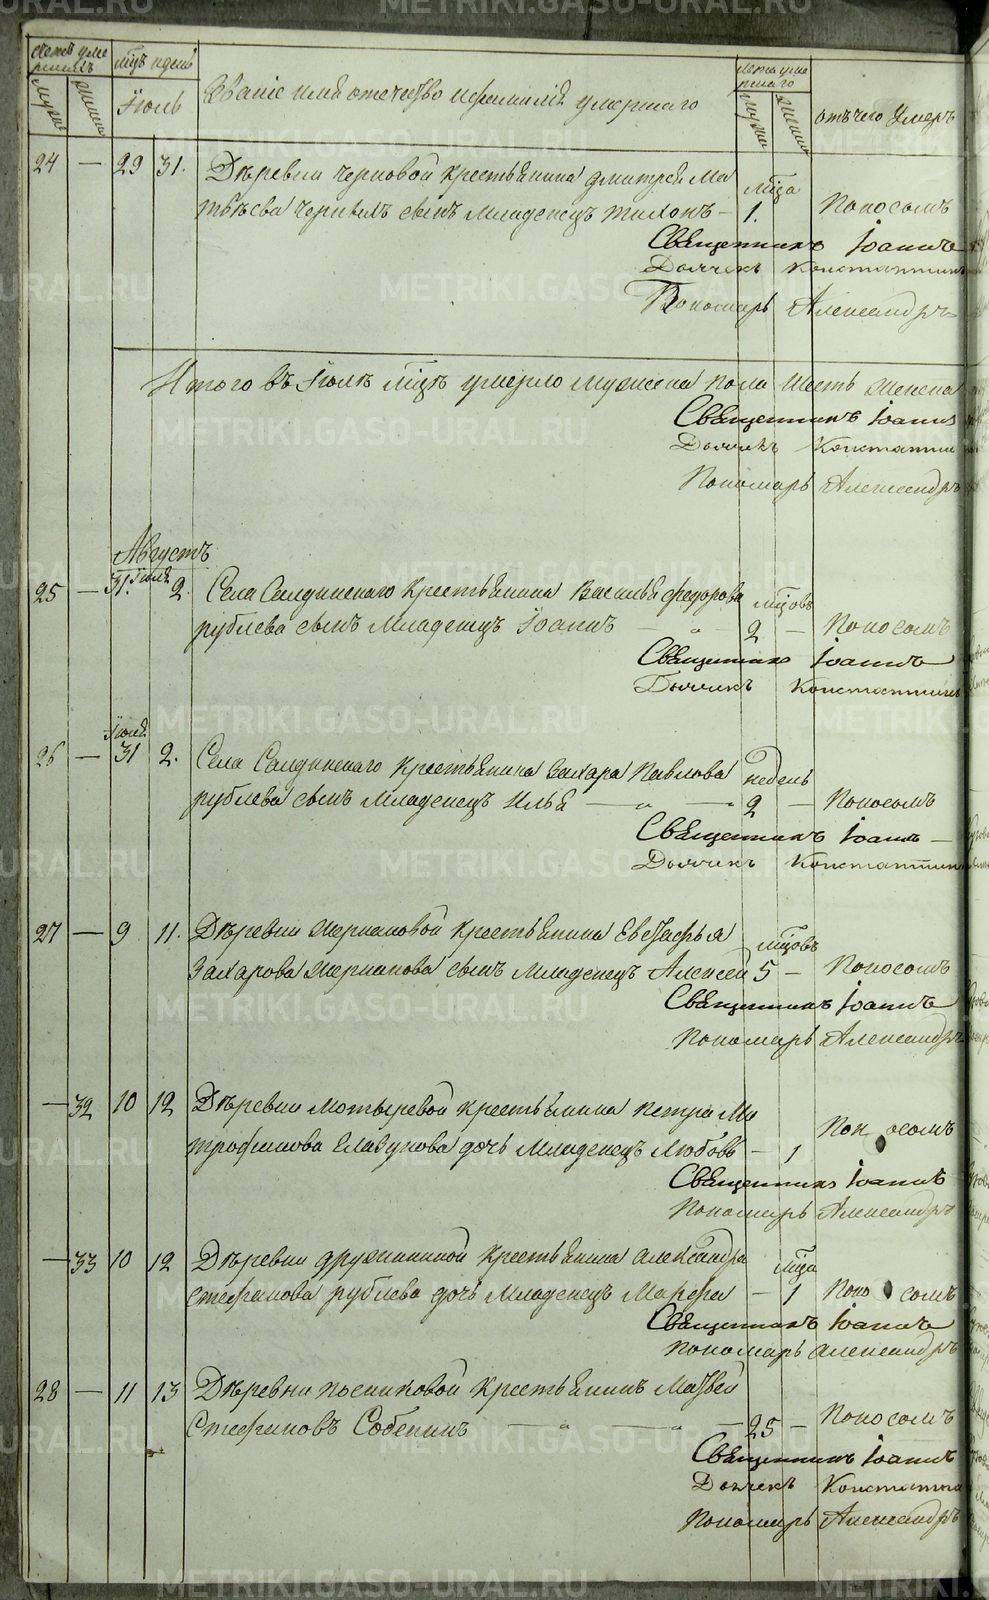 Счетъ уме мцъ и день Званіе имя отечество и фамилія умершаго Лета уме отъ чего умеръ
ршихъ ршаго
мужск женск Іюль мужск женск
24 — 29 31. Дѣревни Черновой Крестьянина Дмитрея Ма мцца
твѣева сынъ Младенецъ Тихонъ — 1. Поносомъ
Священникъ Іоаннъ
Дьячекъ Константинъ
Пономарь Александръ
Итого въ Іюлѣ мцѣ умерло мужеска пола шесть женска
Священникъ Іоаннъ
Дьячекъ Константин
Пономарь Александръ
Августъ
25 — 31. Іюля 2. Села Салдинскаго Крестьянина Василья Федорова мцовъ
Рублева сынъ Младенецъ Іоаннъ — „ — 2 — Поносомъ
Священникъ Іоаннъ
Дьячекъ Константинъ
Іюля
26 — 31 2. Села Салдинскаго Крестьянина Захара Павлова недель
Рублева сынъ Младенецъ Илья — „ — 2 — Поносомъ
Священникъ Іоаннъ
Дьячекъ Константинъ
27 — 9 11. Дѣревни Крестьянина Евстафья мцовъ
Захарова сынъ Младенецъ Алексей 5 — Поносомъ
Священникъ Іоаннъ
Пономарь Александръ
— 32 10 12 Дѣревни Мотыревой Крестьянина Петра Ми
трофанова дочь Младенецъ Любовь — 1 Поносомъ
Священникъ Іоаннъ
Пономарь Александръ
— 33 10 12 Дѣревни Дружининой Крестьянина Александра мцца
Стефанова Рублева дочь Младенецъ Марфа — 1 Поносомъ
Священникъ Іоаннъ
Пономарь Александръ
28 — 11 13 Дѣревни Посниковой Крестьянинъ Матвей
Стефановъ Собенинъ — „ — „ — 25 — Поносомъ
Священникъ Іоаннъ
Дьячекъ Константин
Пономарь Александръ
METRIKI.GASO-URAL.RU